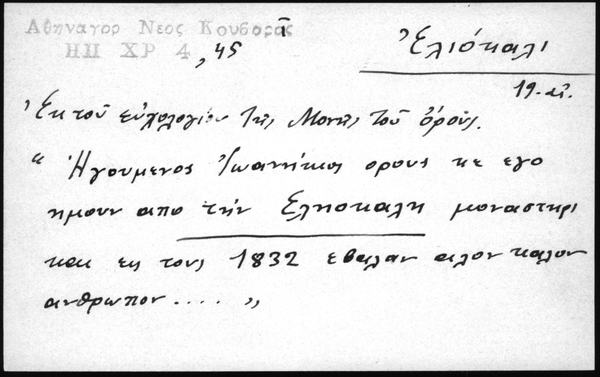 Αθηναγορ Νεος Κουβαρᾶς
ΗΠ ΧΡ 4, 45
Ἐλιόκαλι
19-
Ἐκ τοῦ εὐχολογίου της Μονης τοῦ ὄρους.
“ Ἡγουμενος Ἰωαννίκιος ορους κε εγο
ημουν απο τήν Ελησκαλη μοναστηρι
και εις τους 1832 εβαλαν αλον καλον
ανθρωπον.... „